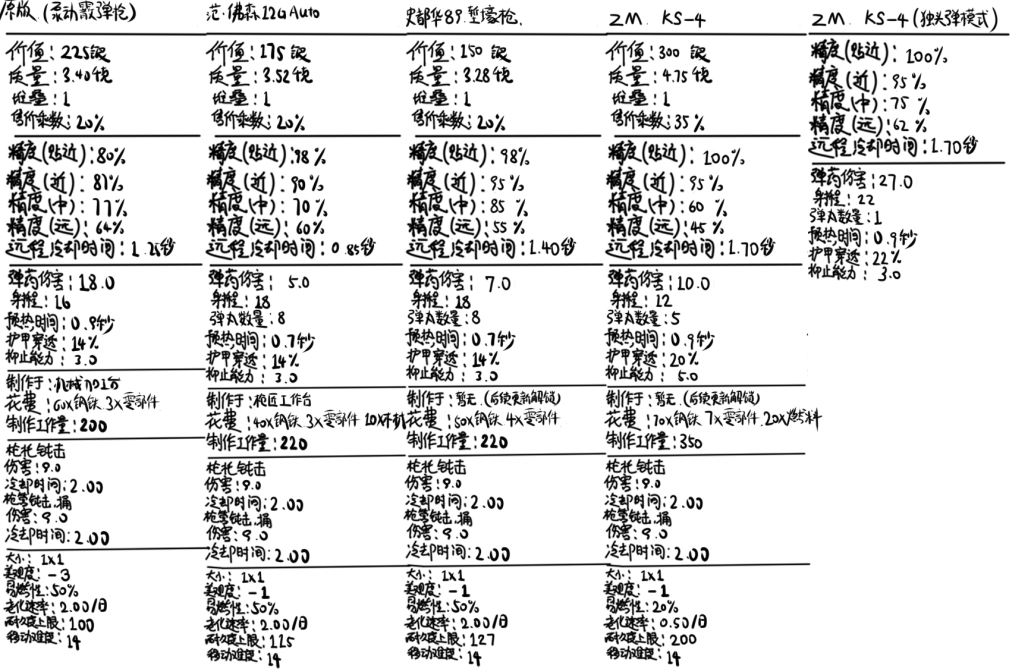 原版(泵动霰弹枪)
价值:225银
质量:3.40千克
堆叠:1
售价乘数:20%
精度(贴近):80%
精度(近):81%
精度(中):77%
精度(远):64%
远程冷却时间:1.25秒
弹药伤害:18.0
射程:16
预热时间:0.9秒
护甲穿透:14%
抑止能力:3.0
制作于:机械加工台
花费:60x钢铁 3x零部件
制作工作量:200
枪托钝击
伤害:9.0
冷却时间:2.00
枪管钝击,捅
伤害:9.0
冷却时间:2.00
大小:1x1
美观度:-3
易燃性:50%
老化速率:2.00/日
耐久度上限:100
移动难度:14
范·佛森12G Auto
价值:175银
质量:3.52千克
堆叠:1
售价乘数:20%
精度(贴近):98%
精度(近):90%
精度(中):70%
精度(远):60%
远程冷却时间:0.85秒
弹药伤害:5.0
射程:18
弹丸数量:8
预热时间:0.7秒
护甲穿透:14%
抑止能力:3.0
制作于:枪匠工作台
花费:40x钢铁 3x零部件 10x木料
制作工作量:220
枪托钝击
伤害:9.0
冷却时间:2.00
枪管钝击,捅
伤害:9.0
冷却时间:2.00
大小:1x1
美观度:-1
易燃性:50%
老化速率:2.00/日
耐久度上限:115
移动难度:14
史都华89.堑壕枪
价值:150银
质量:3.28千克
堆叠:1
售价乘数:20%
精度(贴近):98%
精度(近):95%
精度(中):85%
精度(远):55%
远程冷却时间:1.40秒
弹药伤害:7.0
射程:18
弹丸数量:8
预热时间:0.7秒
护甲穿透:14%
抑止能力:3.0
制作于:暂无(后续更新解锁)
花费:50x钢铁 4x零部件
制作工作量:220
枪托钝击
伤害:9.0
冷却时间:2.00
枪管钝击,捅
伤害:9.0
冷却时间:2.00
大小:1x1
美观度:-1
易燃性:50%
老化速率:2.00/日
耐久度上限:127
移动难度:14
ZM. KS-4
价值:300银
质量:4.75千克
堆叠:1
售价乘数:35%
精度(贴近):100%
精度(近):95%
精度(中):60%
精度(远):45%
远程冷却时间:1.70秒
弹药伤害:10.0
射程:12
弹丸数量:5
预热时间:0.9秒
护甲穿透:20%
抑止能力:5.0
制作于:暂无(后续更新解锁)
花费:70x钢铁 7x零部件 20x燃料
制作工作量:350
枪托钝击
伤害:9.0
冷却时间:2.00
枪管钝击,捅
伤害:9.0
冷却时间:2.00
大小:1x1
美观度:-1
易燃性:20%
老化速率:0.50/日
耐久度上限:200
移动难度:14
ZM. KS-4(独头弹模式)
精度(贴近):100%
精度(近):95%
精度(中):75%
精度(远):62%
远程冷却时间:1.70秒
弹药伤害:27.0
射程:22
弹丸数量:1
预热时间:0.9秒
护甲穿透:22%
抑止能力:3.0